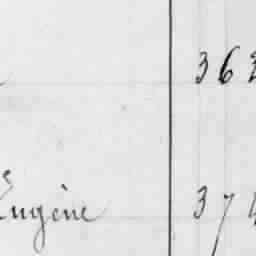 363
Eugène 374